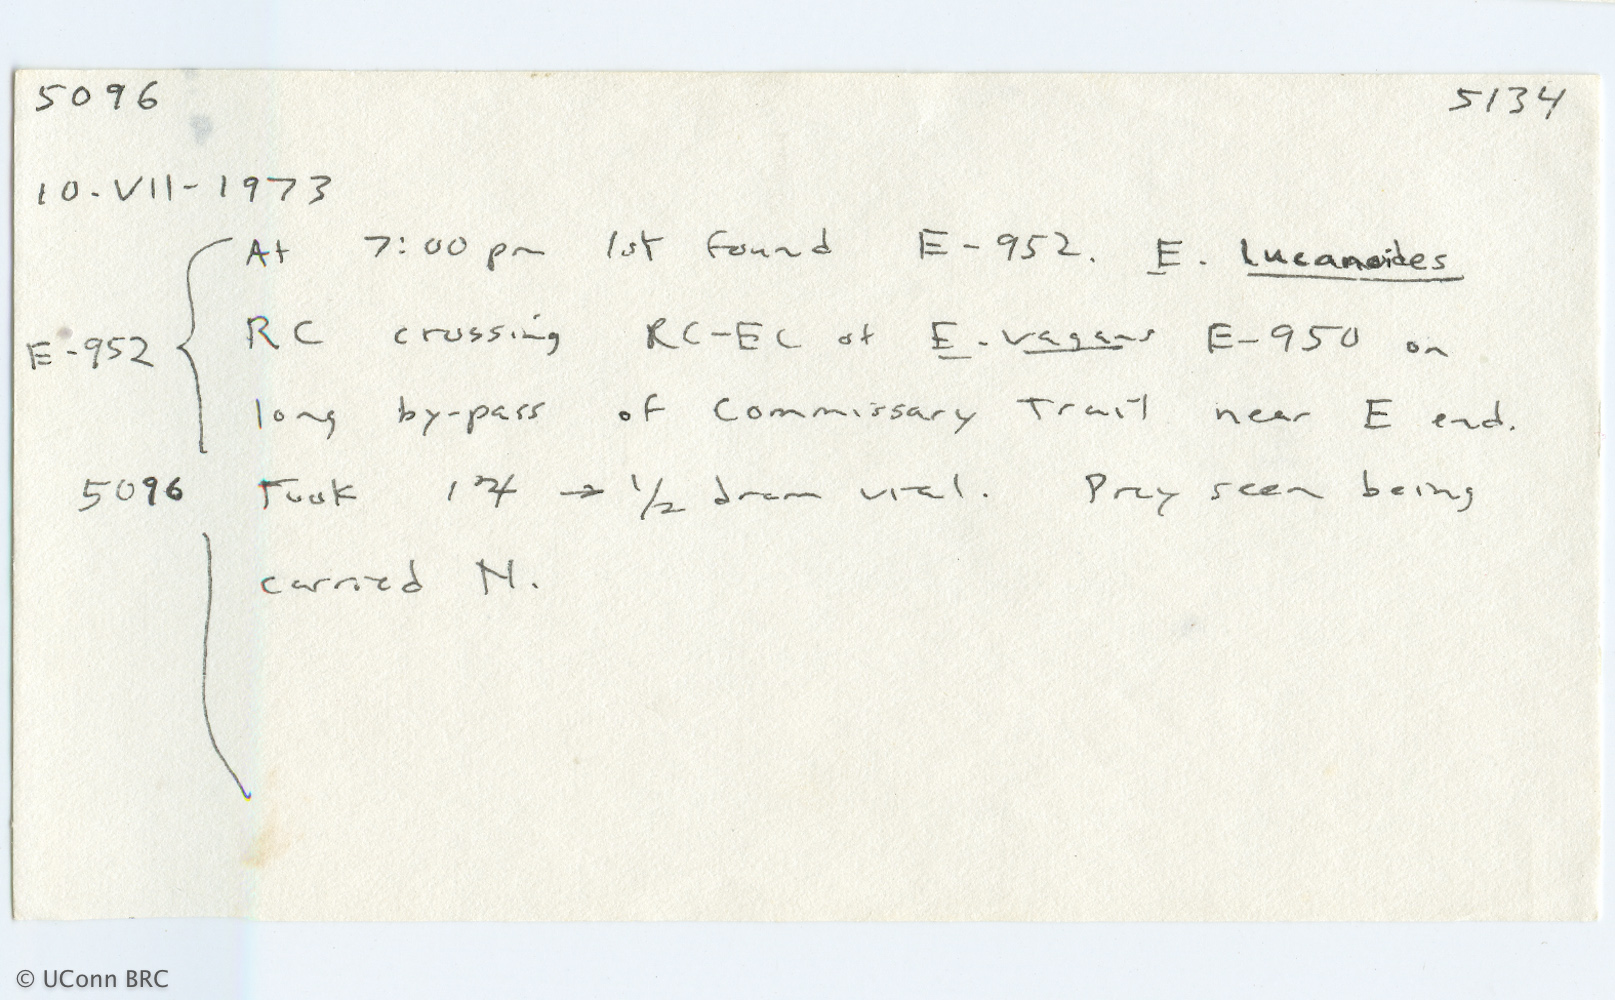 5096 5134
10-VII-1973
At 7:00 pm 1st found E-952. E. lucanoides
E-952 RC crossing RC-EC of E. vagans E-950 on
long by-pass of Commissary Trail near E end.
5096 Took → 1/2 dram vial. Prey seen being
carried N.
© UConn BRC